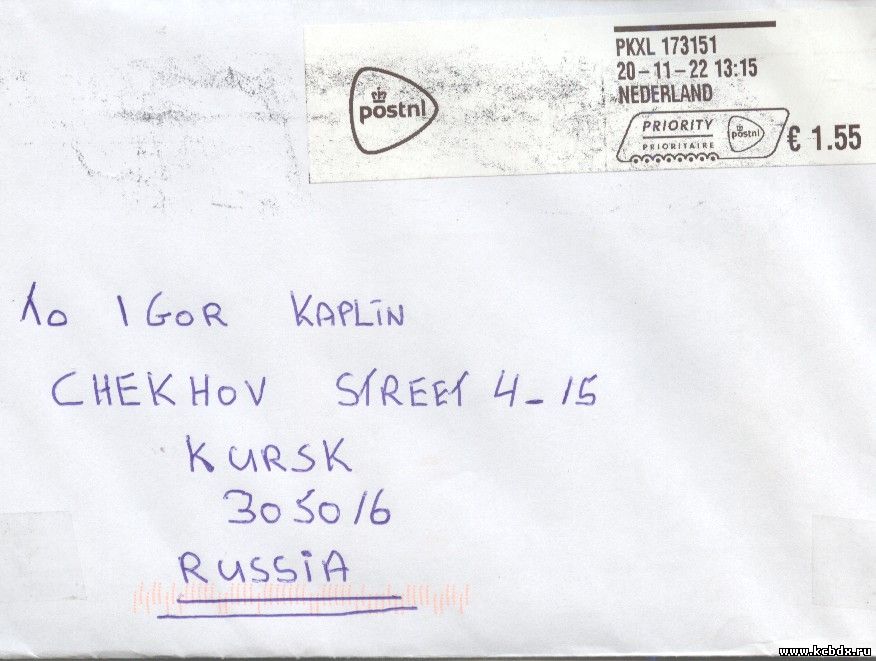 postnl
PKXL 173151
20-11-22 13:15
NEDERLAND
PRIORITY
PRIORITAIRE
postnl
€ 1.55
To IGOR KAPLIN
CHEKHOV STREET 4-15
KURSK
305016
RUSSIA
www.kcbdx.ru